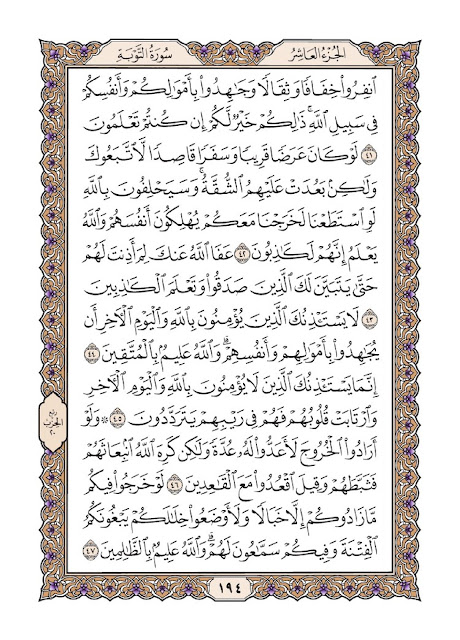 الجُزْءُ العَاشِرُ
سُورَةُ التَّوْبَةِ
انفِرُوا۟ خِفَافًا وَثِقَالًا وَجَٰهِدُوا۟ بِأَمْوَٰلِكُمْ وَأَنفُسِكُمْ
فِي سَبِيلِ اللَّهِ ۚ ذَٰلِكُمْ خَيْرٌ لَّكُمْ إِن كُنتُمْ تَعْلَمُونَ
٤١ لَوْ كَانَ عَرَضًا قَرِيبًا وَسَفَرًا قَاصِدًا لَّاتَّبَعُوكَ
وَلَٰكِنۢ بَعُدَتْ عَلَيْهِمُ الشُّقَّةُ ۚ وَسَيَحْلِفُونَ بِاللَّهِ
لَوِ اسْتَطَعْنَا لَخَرَجْنَا مَعَكُمْ يُهْلِكُونَ أَنفُسَهُمْ وَاللَّهُ
يَعْلَمُ إِنَّهُمْ لَكَٰذِبُونَ ٤٢ عَفَا اللَّهُ عَنكَ لِمَ أَذِنتَ لَهُمْ
حَتَّىٰ يَتَبَيَّنَ لَكَ الَّذِينَ صَدَقُوا۟ وَتَعْلَمَ الْكَٰذِبِينَ
٤٣ لَا يَسْتَـْٔذِنُكَ الَّذِينَ يُؤْمِنُونَ بِاللَّهِ وَالْيَوْمِ الْءَاخِرِ أَن
يُجَٰهِدُوا۟ بِأَمْوَٰلِهِمْ وَأَنفُسِهِمْ ۗ وَاللَّهُ عَلِيمٌۢ بِالْمُتَّقِينَ ٤٤
إِنَّمَا يَسْتَـْٔذِنُكَ الَّذِينَ لَا يُؤْمِنُونَ بِاللَّهِ وَالْيَوْمِ الْءَاخِرِ
وَارْتَابَتْ قُلُوبُهُمْ فَهُمْ فِي رَيْبِهِمْ يَتَرَدَّدُونَ ٤٥ ۞ وَلَوْ
أَرَادُوا۟ الْخُرُوجَ لَأَعَدُّوا۟ لَهُۥ عُدَّةً وَلَٰكِن كَرِهَ اللَّهُ انۢبِعَاثَهُمْ
فَثَبَّطَهُمْ وَقِيلَ اقْعُدُوا۟ مَعَ الْقَٰعِدِينَ ٤٦ لَوْ خَرَجُوا۟ فِيكُم
مَّا زَادُوكُمْ إِلَّا خَبَالًا وَلَأَوْضَعُوا۟ خِلَٰلَكُمْ يَبْغُونَكُمُ
الْفِتْنَةَ وَفِيكُمْ سَمَّٰعُونَ لَهُمْ ۗ وَاللَّهُ عَلِيمٌۢ بِالظَّٰلِمِينَ ٤٧
ربع
الحزب
٢٠
١٩٤